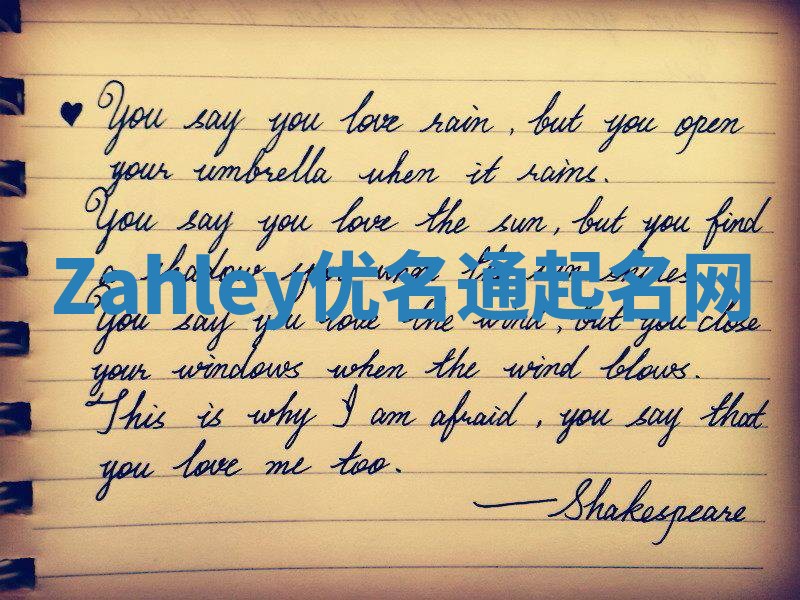 ♥ You say you love rain, but you open
your umbrella when it rains.
You say you love the sun, but you find
a shadow spot when the sun shines.
Zahley优名通起名网
You say you love the wind, but you close
your windows when the wind blows.
This is why I am afraid, you say that
you love me too.
—Shakespeare